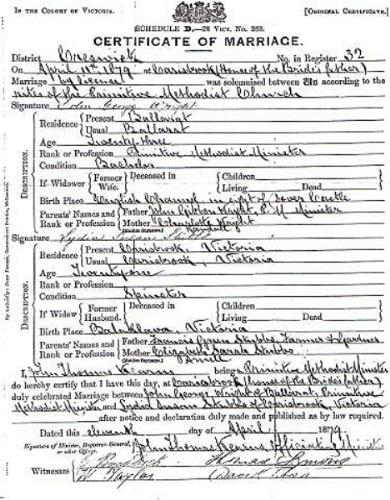 IN THE COLONY OF VICTORIA. [ORIGINAL CERTIFICATE.]
SCHEDULE D.—28 VICT. NO. 268.
CERTIFICATE OF MARRIAGE.
District Creswick No. in Register 32
On April 11th 1879 at Carisbrook (House of the Bride's father)
Marriage by license was solemnized between us according to the
rites of the Primitive Methodist Church
Signature John George Wright
Residence Present Ballarat
Usual Ballarat
Age Twenty-three
Rank or Profession Primitive Methodist Minister
Condition Bachelor
If Widower Former Wife. Deceased in Children
Living Dead
Birth Place English Channel in sight of Dover Castle
Parents' Names and Father John Wright P. M. Minister
Rank or Profession Mother Charlotte Wright
Signature Lydia Susan Stubbs
Residence Present Carisbrook, Victoria
Usual Carisbrook, Victoria
Age Twenty one
Rank or Profession
Condition Spinster
If Widow Former Husband. Deceased in Children
Living Dead
Birth Place Balaklava, Victoria
Parents' Names and Father Francis Green Stubbs, Farmer & Gardener
Rank or Profession Mother Elizabeth Sarah Stubbs
DESCRIPTION.
DESCRIPTION.
I, John Thomas Kearns being Primitive Methodist Minister
do hereby certify that I have this day, at Carisbrook (house of the Bride's father)
duly celebrated Marriage between John George Wright of Ballarat, Primitive
Methodist Minister and Lydia Susan Stubbs of Carisbrook, Victoria
after notice and declaration duly made and published as by law required.
Dated this eleventh day of April 1879
Signature of Minister, Registrar-General, or other Officer. John Thomas Kearns, Officiating Minister
Witnesses
Taylor David